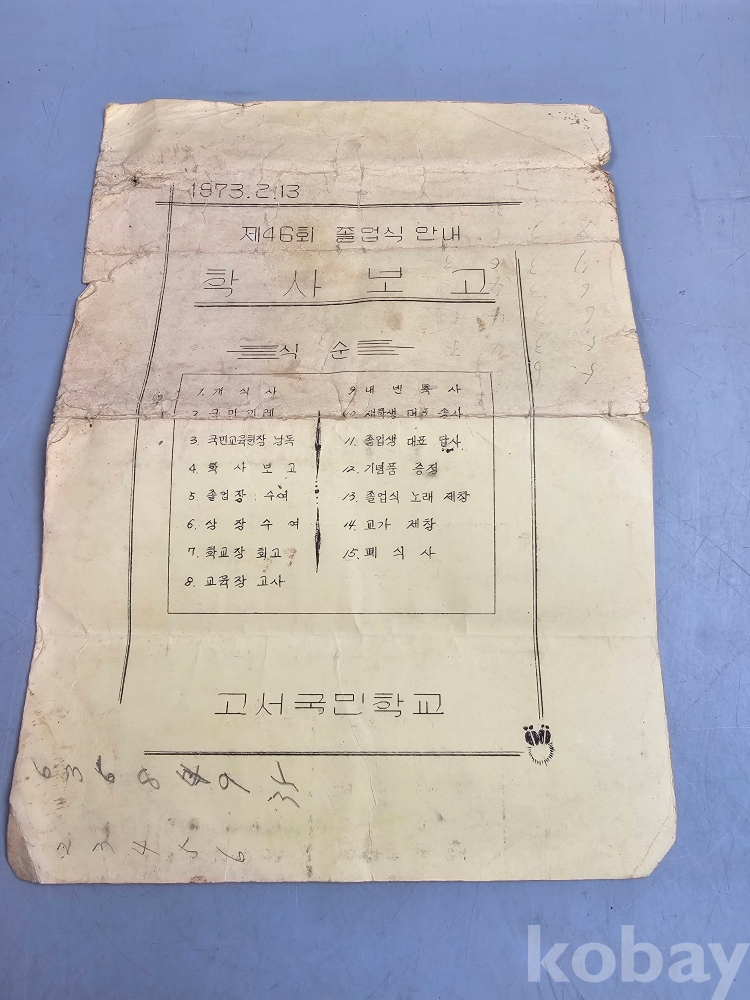 1973.2.13
제46회 졸업식 안내
학사보고
식순
1. 개식사
2. 국민의례
3. 국민교육헌장 낭독
4. 학사보고
5. 졸업장 수여
6. 상장수여
7. 학교장 회고
8. 교육장 고사
9. 내빈축사
10. 재학생 대표 송사
11. 졸업생 대표 답사
12. 기념품 증정
13. 졸업식 노래 제창
14. 교가 제창
15. 폐식사
고서국민학교
6 3 6 8 9
2 3 4 5 6
kobay